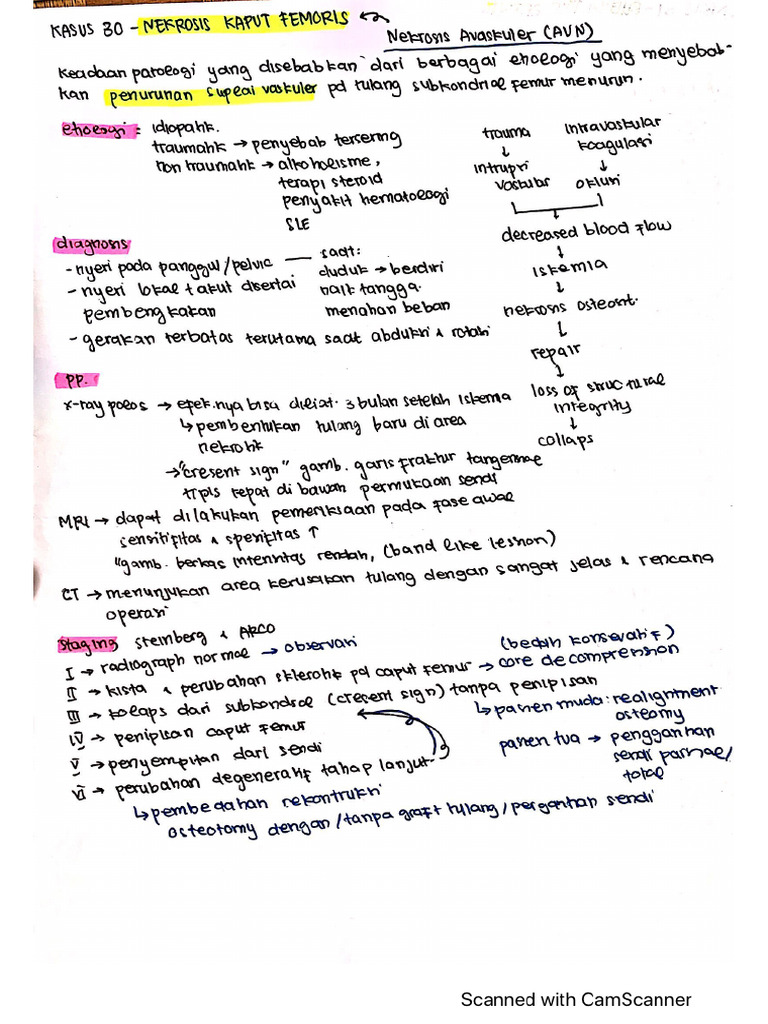 KASUS 30 - NEKROSIS KAPUT FEMORIS
Nekrosis Avaskuler (AVN)
Keadaan patologi yang disebabkan dari berbagai etiologi yang menyebab-
kan penurunan suplai vaskuler pd tulang subkondral femur menurun.
etiologi = Idiopatik.
traumatik → penyebab tersering
non traumatik → alkoholisme,
terapi steroid
penyakit hematologi
SLE
trauma
↓
intrupsi
vaskular
intravaskular
koagulasi
↓
oklusi
↓
decreased blood flow
↓
iskemia
↓
nekrosis osteosit.
↓
repair
↓
loss of structural
integrity
↓
collaps
diagnosis
- nyeri pada panggul/pelvic — saat:
duduk → berdiri
naik tangga.
menahan beban
- nyeri lokal + akut disertai
pembengkakan
- gerakan terbatas terutama saat abduksi & rotasi
PP.
x-ray polos → efek.nya bisa dilihat 3 bulan setelah iskemia
↳ pembentukan tulang baru di area
nekrotik
→ "cresent sign" gamb. garis fraktur tangensial
tipis tepat di bawah permukaan sendi
MRI → dapat dilakukan pemeriksaan pada fase awal
sensitifitas & spesifitas ↑
"gamb. berkas intensitas rendah, (band like lession)
CT → menunjukan area kerusakan tulang dengan sangat jelas & rencana
operasi
Staging steinberg & ARCO
I → radiograph normal → observasi
II → kista & perubahan sklerotik pd caput femur → core decompression
(bedah konservatif)
III → kolaps dari subkondral (cresent sign) tanpa penipisan
↳ pasien muda: realignment
osteomy
pasien tua → penggantian
sendi parsial/
total
IV → penipisan caput femur
V → penyempitan dari sendi
VI → perubahan degeneratif tahap lanjut
↳ pembedahan rekontruksi
osteotomy dengan/tanpa graft tulang/pergantian sendi
Scanned with CamScanner